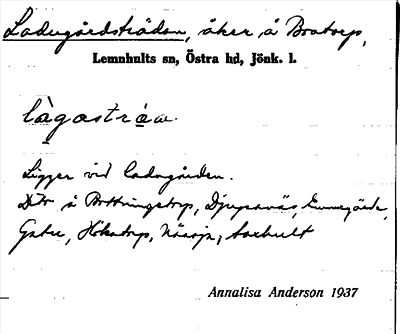 Ladugårdsträdan, åker å Bratorp,
Lemnhults sn, Östra hd, Jönk. l.
làgastráw.
Ligger vid ladugården.
Dito å Bottningstorp, Djupsväs,
Gatu, Hökatorp, Näsoja, Saxhult
Annalisa Anderson 1937